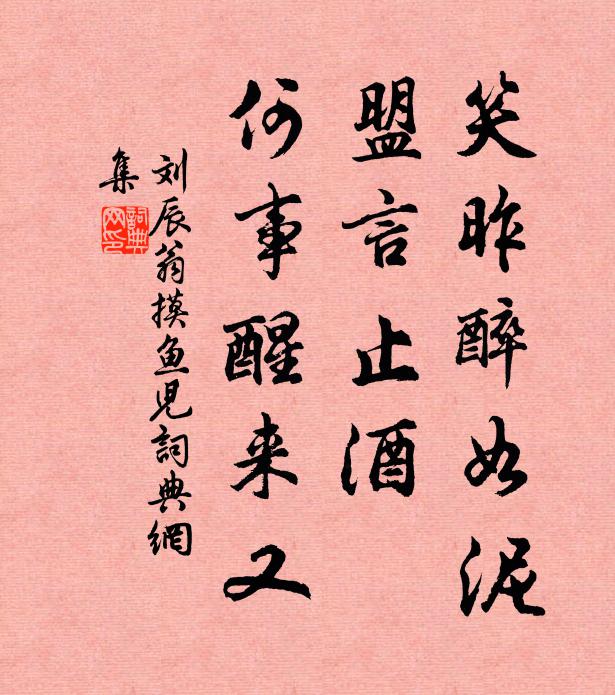 笑昨醉如泥
盟言止酒
何事醒来又
刘辰翁摸鱼児詞典網
集
詞典
网印